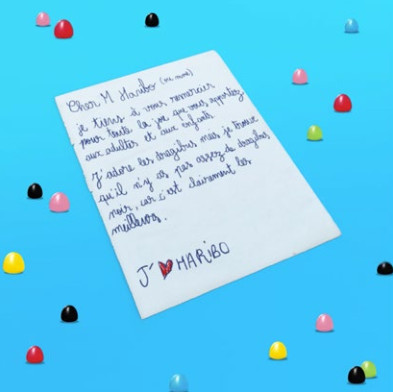 Cher M Haribo (ou mme)
je tiens à vous remercier
pour toute la joie que vous apportez
aux adultes et aux enfants
J'adore les dragibus mais je trouve
qu'il n'y as pas assez de dragibus
noir, car c'est clairement les
meilleurs.
J'❤ HARIBO